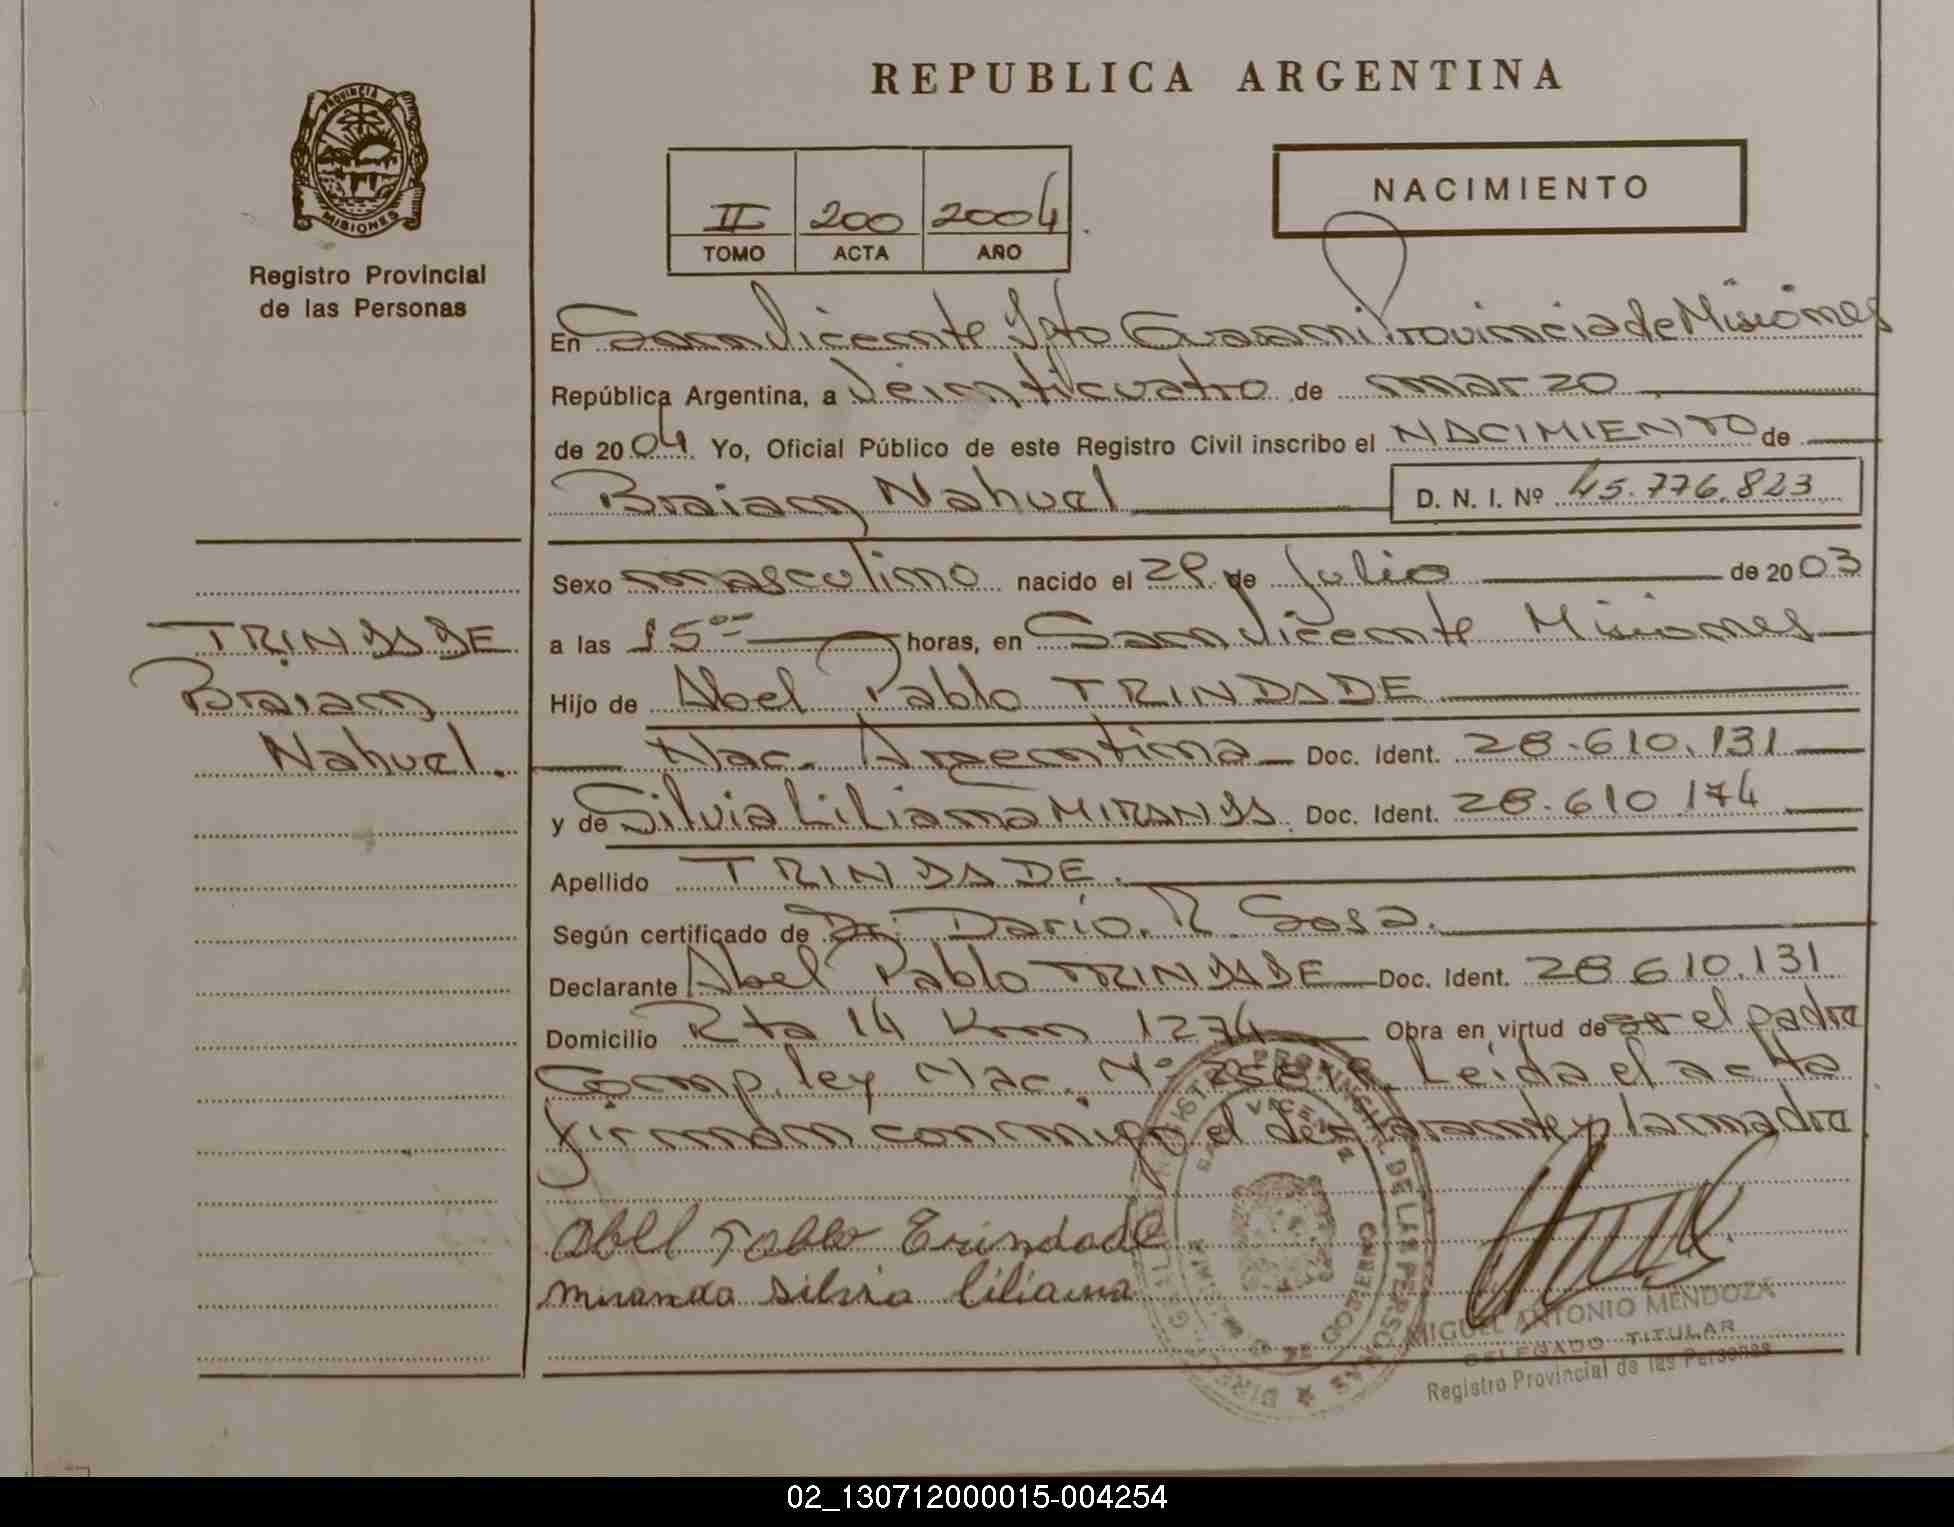 REPUBLICA ARGENTINA
PROVINCIA DE
MISIONES
Registro Provincial
de las Personas
II 200 2004
TOMO ACTA AÑO
NACIMIENTO
En San Vicente Dpto Guarani Provincia de Misiones
República Argentina, a Veinticuatro de marzo
de 2004 Yo, Oficial Público de este Registro Civil inscribo el NACIMIENTO de
Braian Nahuel D. N. I. Nº 45.776.823
TRINDADE
Braian
Nahuel.
Sexo masculino nacido el de Julio de 2003
a las 15 horas, en San Vicente Misiones
Hijo de Abel Pablo TRINDADE
Nac. Argentina Doc. Ident. 28.610.131
y de Silvia Liliana MIRANDA Doc. Ident. 28.610.174
Apellido TRINDADE.
Según certificado de Dr. Darío. R. Sosa.
Declarante Abel Pablo TRINDADE Doc. Ident. 28 610.131
Domicilio Rta 14 Km 1274 Obra en virtud de el padre
Comp. ley Nac. Nº Leída el acta
firman conmigo el declarante y la madre
Abel Pablo Trindade
Miranda Silvia Liliana
MIGUEL ANTONIO MENDOZA
DELEGADO TITULAR
Registro Provincial de las Personas
02_130712000015-004254